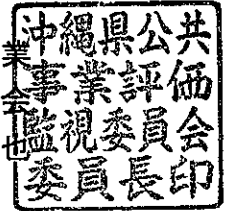 沖縄県公共
事業評価
監視委員会
委員長印
業会也